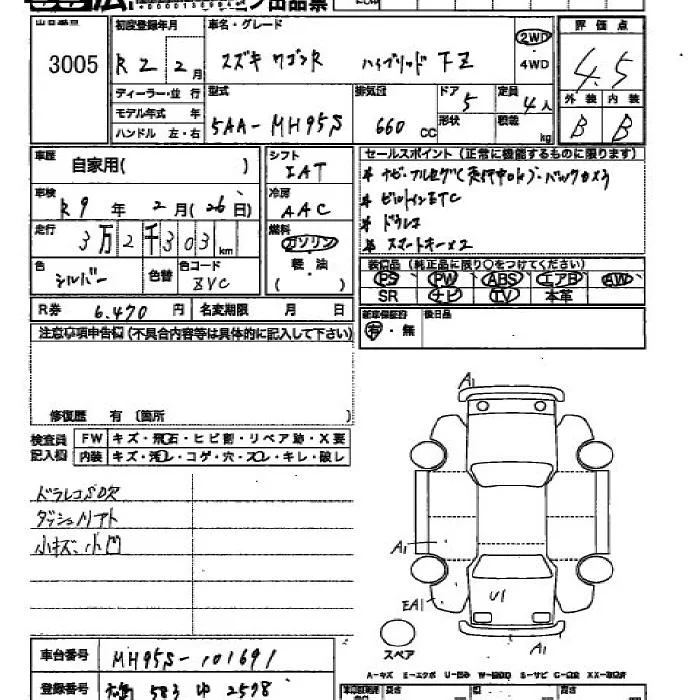 出品票
出品番号 初度登録年月 車名・グレード 2WD 評価点
3005 R2 2月 スズキ ワゴンR ハイブリッド FZ 4WD 4.5
ディーラー・並行 型式 排気量 ドア 定員 外装 内装
モデル年式 年 5AA-MH95S 660CC 5 4人 B B
ハンドル 左・右 形状 積載 kg
車歴 自家用( ) シフト IAT セールスポイント (正常に機能するものに限ります)
車検 R9年 2月(26日) 冷房 AAC
* ナビ・フルセグ(走行中OK)・バックカメラ
* ビルトインETC
走行 3万2千303km 燃料 ガソリン
* ドラレコ
軽・油
* スマートキー×2
色 シルバー 色替 色コード ZVC ( )
装備品 (純正品に限り○をつけてください)
PS PW ABS エアB AW
SR ナビ TV 本革
R券 6,470円 名変期限 月 日
新車保証書 有・無 後日品
注意事項申告欄 (不具合内容等は具体的に記入して下さい)
修復歴 有 (箇所 )
検査員記入欄 FW キズ・飛石・ヒビ割・リペア跡・X要
内装 キズ・汚レ・コゲ・穴・スレ・キレ・破レ
ドラレコSD欠
ダッシュノリアト
小キズ、小凹
A1
A1
EA1
U1
A1
スペア
車台番号 MH95S-101691
A-キズ E-エクボ U-凹み W-補修跡 S-サビ C-腐食 XX-取替済
登録番号 583 ゆ 2598